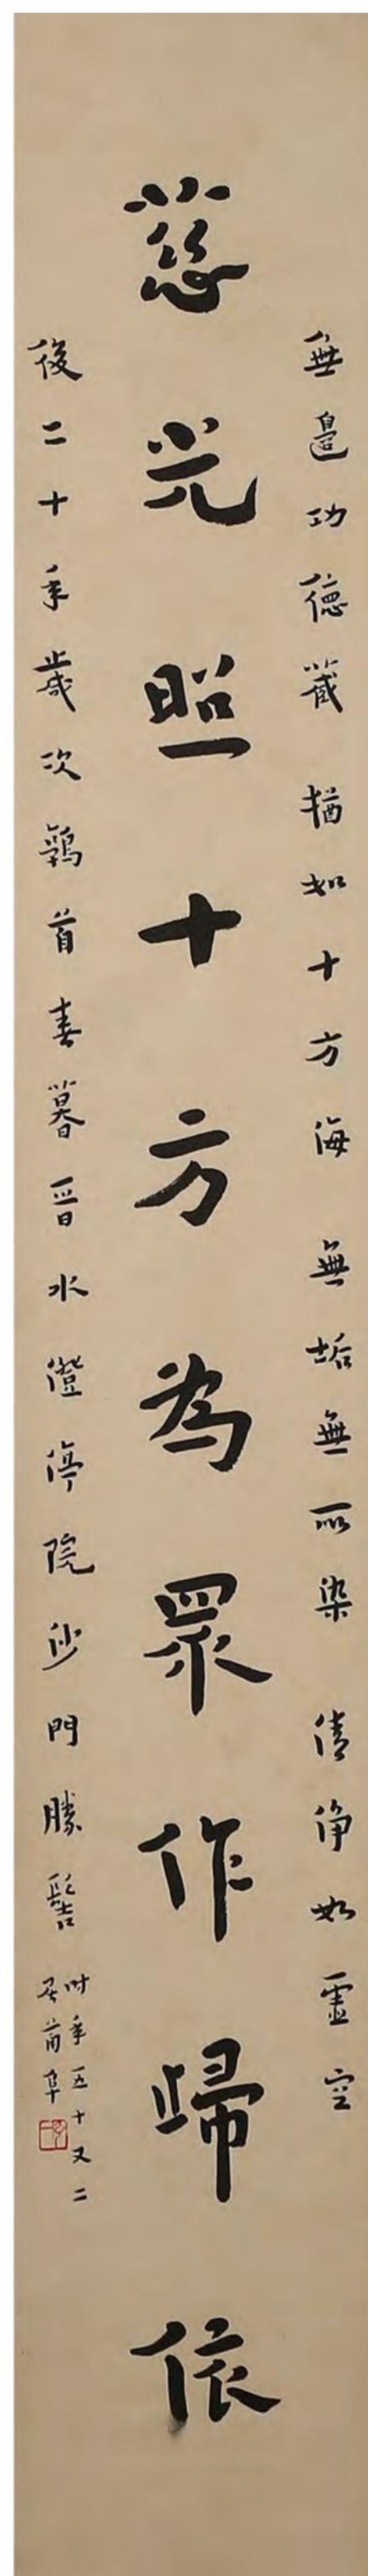 無邊功德藏 猶如十方海 無垢無所染 清淨如虛空
慈光照十方為眾作歸依
後二十年歲次鶉首春暮晉水澄渟院沙門勝髻
時年五十又二
居莆阜